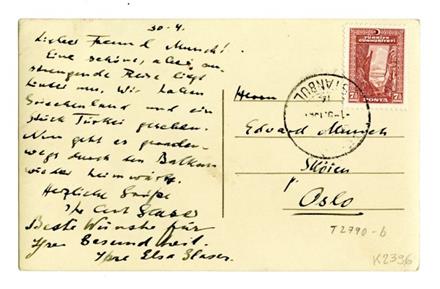 30-4.
Lieber Freund Munch!
Eine schöne, aber an-
strengende Reise liegt
hinter uns. Wir haben
Griechenland und ein
Stück Türkei gesehen.
Nun geht es geraden-
wegs durch den Balkan
wieder heimwärts.
Herzliche Grüße
Ihr Curt Glaser
Beste Wünsche für
Ihre Gesundheit.
Ihre Elsa Glaser.
TÜRKİYE
CUMHURİYETİ
7½ POSTA 7½
ISTANBUL
Herrn
Edvard Munch
Sköien
Oslo
T2790-b
K2396